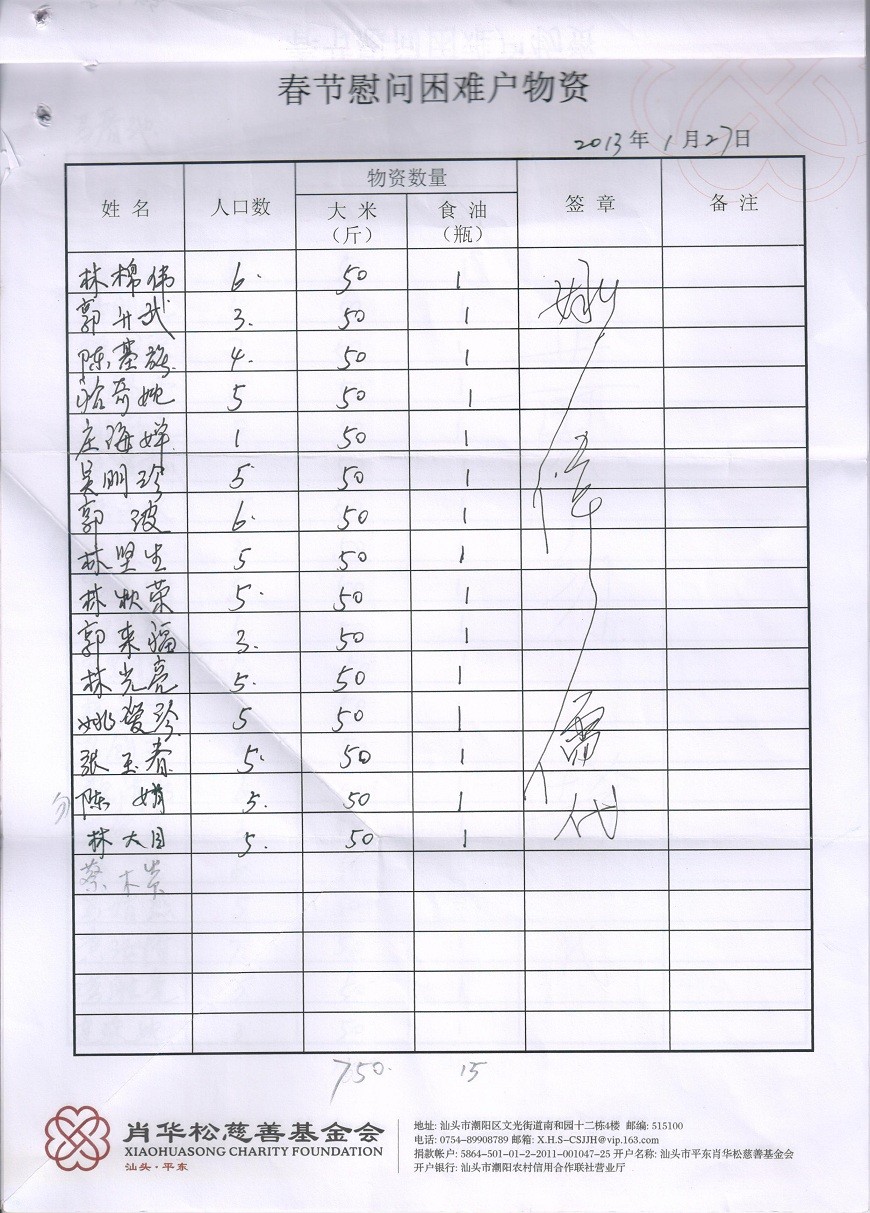 春节慰问困难户物资
2013年1月27日
姓名 人口数 物资数量 签章 备注
大米（斤） 食油（瓶）
林棉伟 6. 50 1
郭升武 3. 50 1
陈基 4. 50 1
奇 5 50 1
庄海婵 1 50 1
吴明珍 5 50 1
郭波 6. 50 1
林坚生 5 50 1
林秋荣 5. 50 1
郭来福 3. 50 1
林光亮 5. 50 1
姚爱珍 5 50 1
张玉春 5. 50 1
陈娟 5. 50 1
林大目 5. 50 1
蔡木
代
750. 15
肖华松慈善基金会
XIAOHUASONG CHARITY FOUNDATION
汕头·平东
地址: 汕头市潮阳区文光街道南和园十二栋4楼 邮编: 515100
电话: 0754-89908789 邮箱: X.H.S-CSJJH@vip.163.com
捐款帐户: 5864-501-01-2-2011-001047-25 开户名称: 汕头市平东肖华松慈善基金会
开户银行: 汕头市潮阳农村信用合作联社营业厅